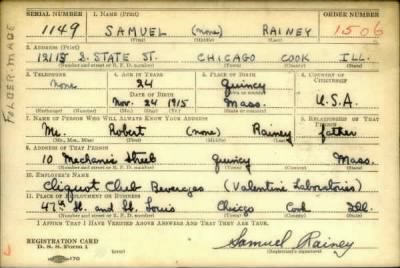 SERIAL NUMBER 1. NAME (Print) ORDER NUMBER
1149 SAMUEL (none) RAINEY 1506
(First) (Middle) (Last)
2. ADDRESS (Print)
S. STATE ST. CHICAGO COOK ILL.
(Number and street or R. F. D. number) (Town) (County) (State)
3. TELEPHONE 4. AGE IN YEARS 5. PLACE OF BIRTH 6. COUNTRY OF CITIZENSHIP
None 24 Quincy
DATE OF BIRTH (Town or county)
Nov. 24 1915 Mass. U.S.A.
(Mo.) (Day) (Yr.) (State or country)
7. NAME OF PERSON WHO WILL ALWAYS KNOW YOUR ADDRESS 8. RELATIONSHIP OF THAT PERSON
Mr. Robert (none) Rainey father
(Mr., Mrs., Miss) (First) (Middle) (Last)
9. ADDRESS OF THAT PERSON
10 Mechanic Street Quincy Mass.
(Number and street or R. F. D. number) (Town) (County) (State)
10. EMPLOYER'S NAME
Cliquot Club Beverages (Valentine Laboratories)
11. PLACE OF EMPLOYMENT OR BUSINESS
47th St. and St. Louis Chicago Cook Ill.
(Number and street or R. F. D. number) (Town) (County) (State)
I AFFIRM THAT I HAVE VERIFIED ABOVE ANSWERS AND THAT THEY ARE TRUE.
REGISTRATION CARD
D. S. S. Form 1
Samuel Rainey
(Registrant's signature)
FOLDER-MADE